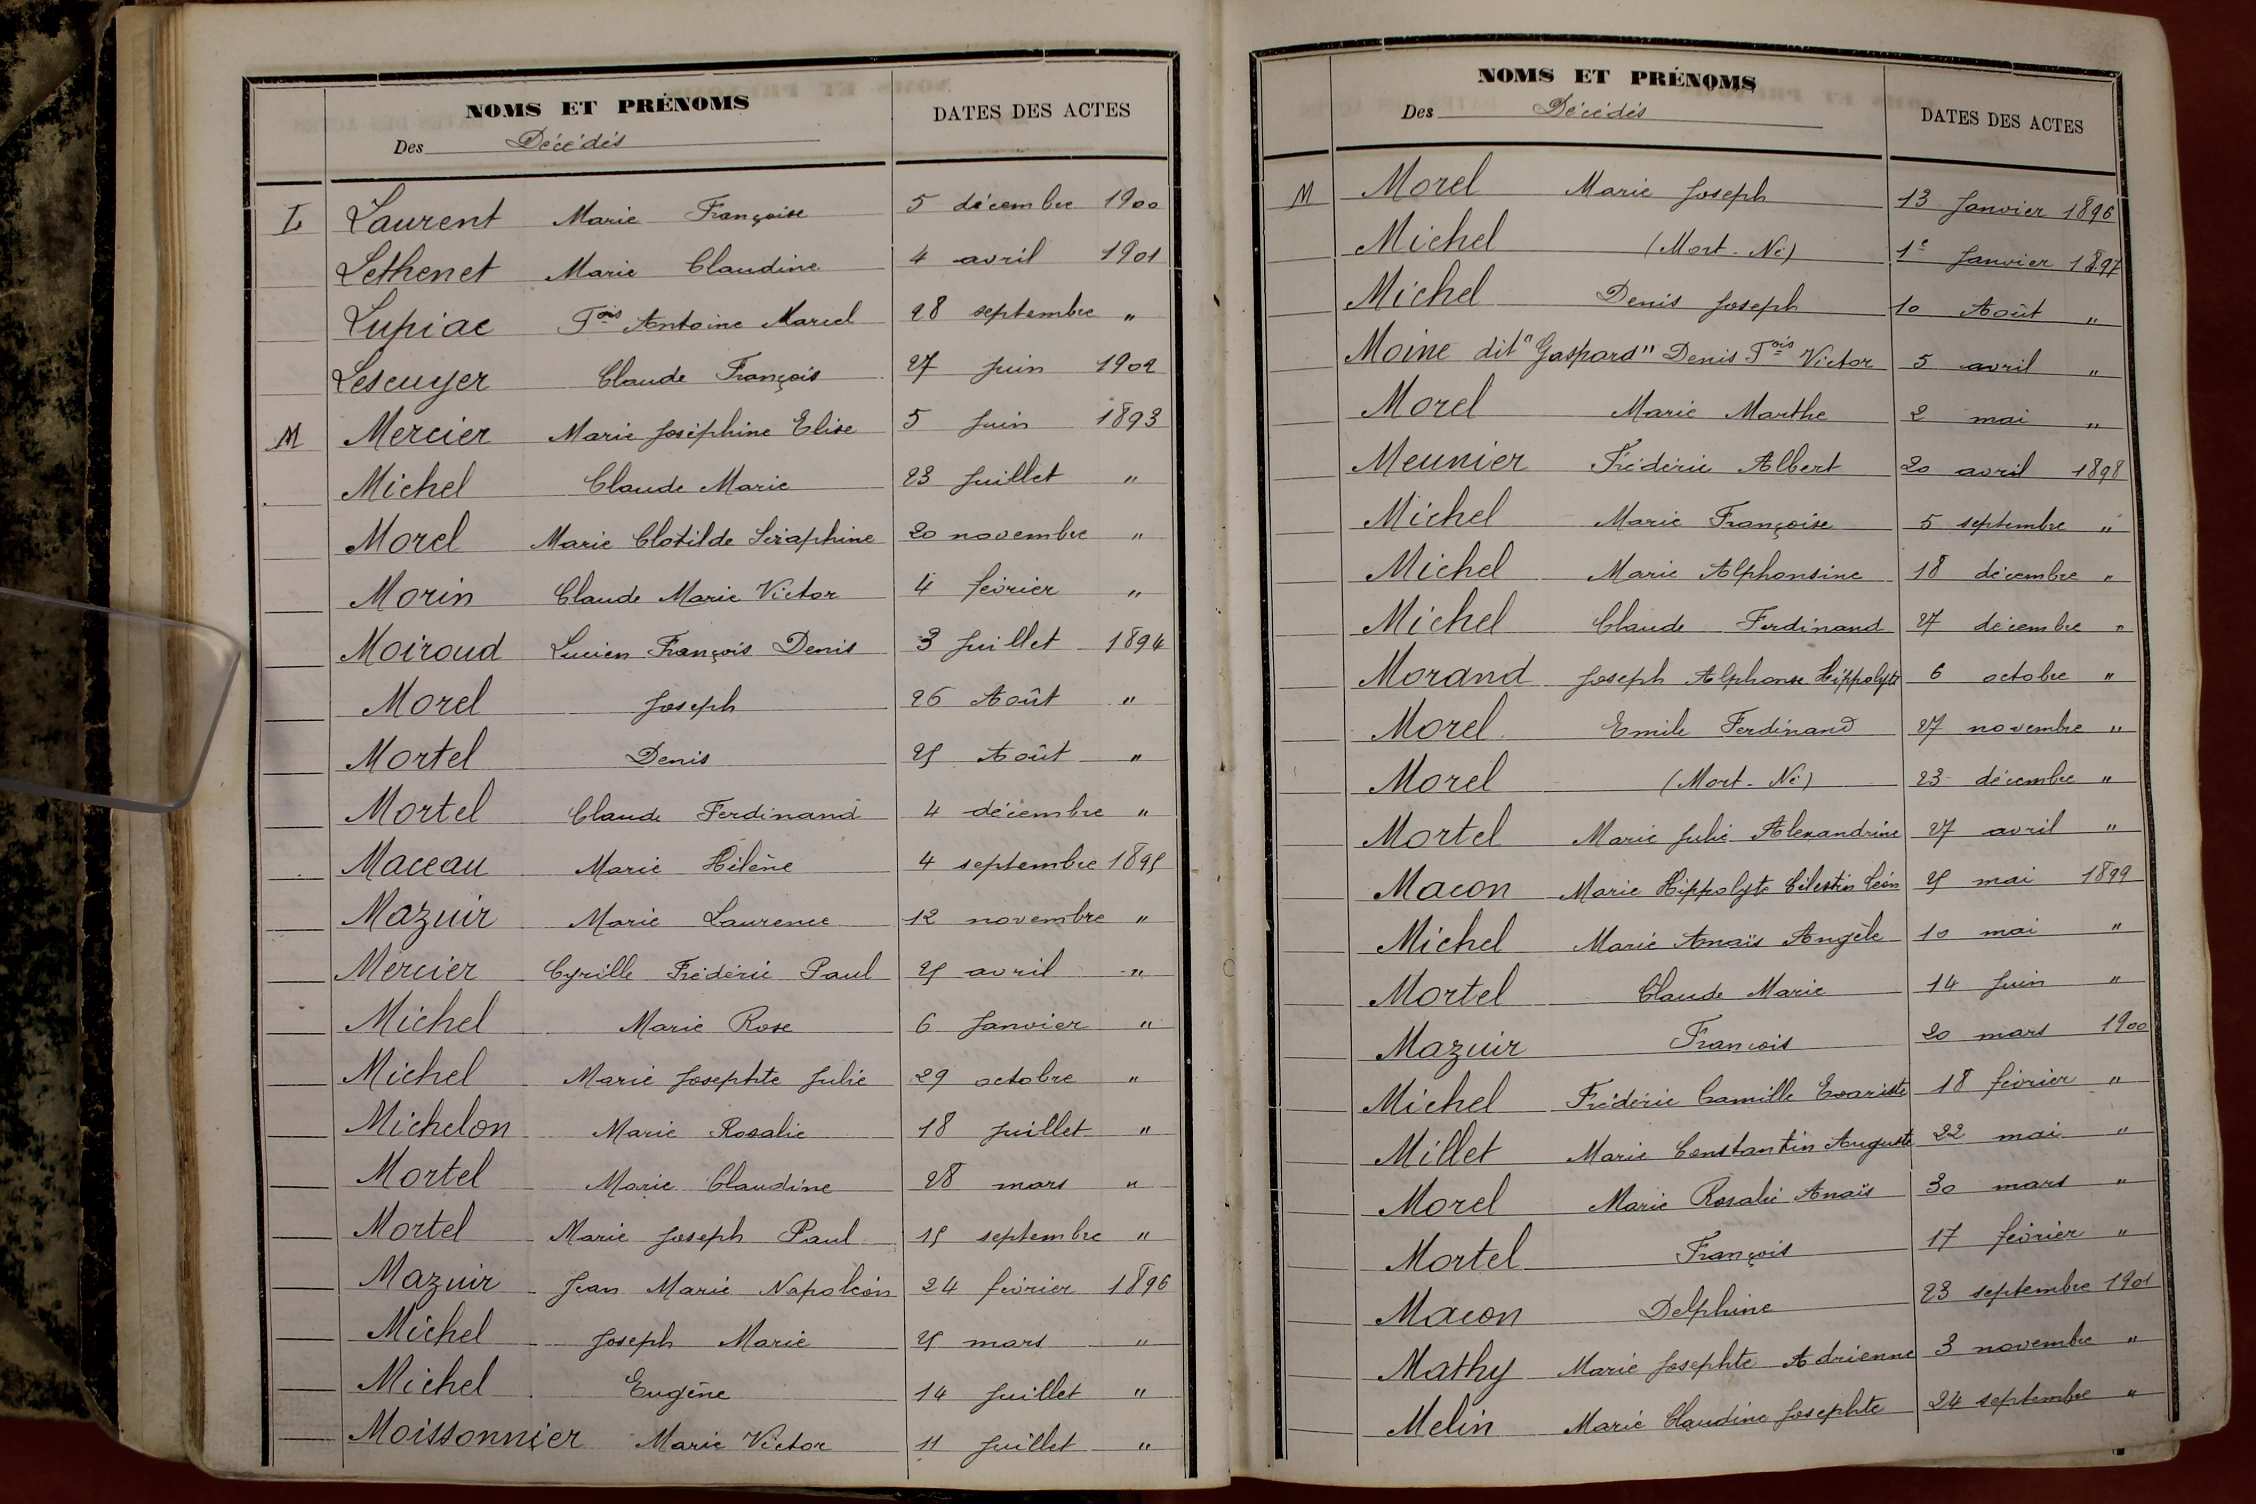 NOMS ET PRÉNOMS
Des Décédés
DATES DES ACTES
L Laurent Marie Françoise 5 décembre 1900
Lethenet Marie Claudine 4 avril 1901
Lupiac Fois Antoine Marcel 28 septembre "
Lescuyer Claude François 27 Juin 1902
M Mercier Marie Joséphine Elise 5 Juin 1893
Michel Claude Marie 23 Juillet "
Morel Marie Clotilde Séraphine 20 novembre "
Morin Claude Marie Victor 4 février "
Moiroud Lucien François Denis 3 Juillet 1894
Morel Joseph 26 Août "
Mortel Denis 25 Août "
Mortel Claude Ferdinand 4 décembre "
Maceau Marie Hélène 4 septembre 1895
Mazuir Marie Laurence 12 novembre "
Mercier Cyrille Frédéric Paul 25 avril "
Michel Marie Rose 6 Janvier "
Michel Marie Josephte Julie 29 octobre "
Michelon Marie Rosalie 18 Juillet "
Mortel Marie Claudine 28 mars "
Mortel Marie Joseph Paul 15 septembre "
Mazuir Jean Marie Napoléon 24 février 1896
Michel Joseph Marie 25 mars "
Michel Eugène 14 Juillet "
Moissonnier Marie Victor 11 Juillet "
NOMS ET PRÉNOMS
Des Décédés
DATES DES ACTES
M Morel Marie Joseph 13 Janvier 1896
Michel (Mort-Né) 1e Janvier 1897
Michel Denis Joseph 10 Août "
Moine dit "Gaspard" Denis Fois Victor 5 avril "
Morel Marie Marthe 2 mai "
Meunier Frédéric Albert 20 avril 1898
Michel Marie Françoise 5 septembre "
Michel Marie Alphonsine 18 décembre "
Michel Claude Ferdinand 27 décembre "
Morand Joseph Alphonse Hippolyte 6 octobre "
Morel Emile Ferdinand 27 novembre "
Morel (Mort-Né) 23 décembre "
Mortel Marie Julie Alexandrine 27 avril "
Macon Marie Hippolyte Célestin Léon 25 mai 1899
Michel Marie Anaïs Angèle 10 mai "
Mortel Claude Marie 14 Juin "
Mazuir Francois 20 mars 1900
Michel Frédéric Camille Evariste 18 février "
Millet Marie Constantin Auguste 22 mai "
Morel Marie Rosalie Anaïs 30 mars "
Mortel François 17 février "
Macon Delphine 23 septembre 1901
Mathy Marie Josephte Adrienne 3 novembre "
Melin Marie Claudine Josephte 24 septembre "